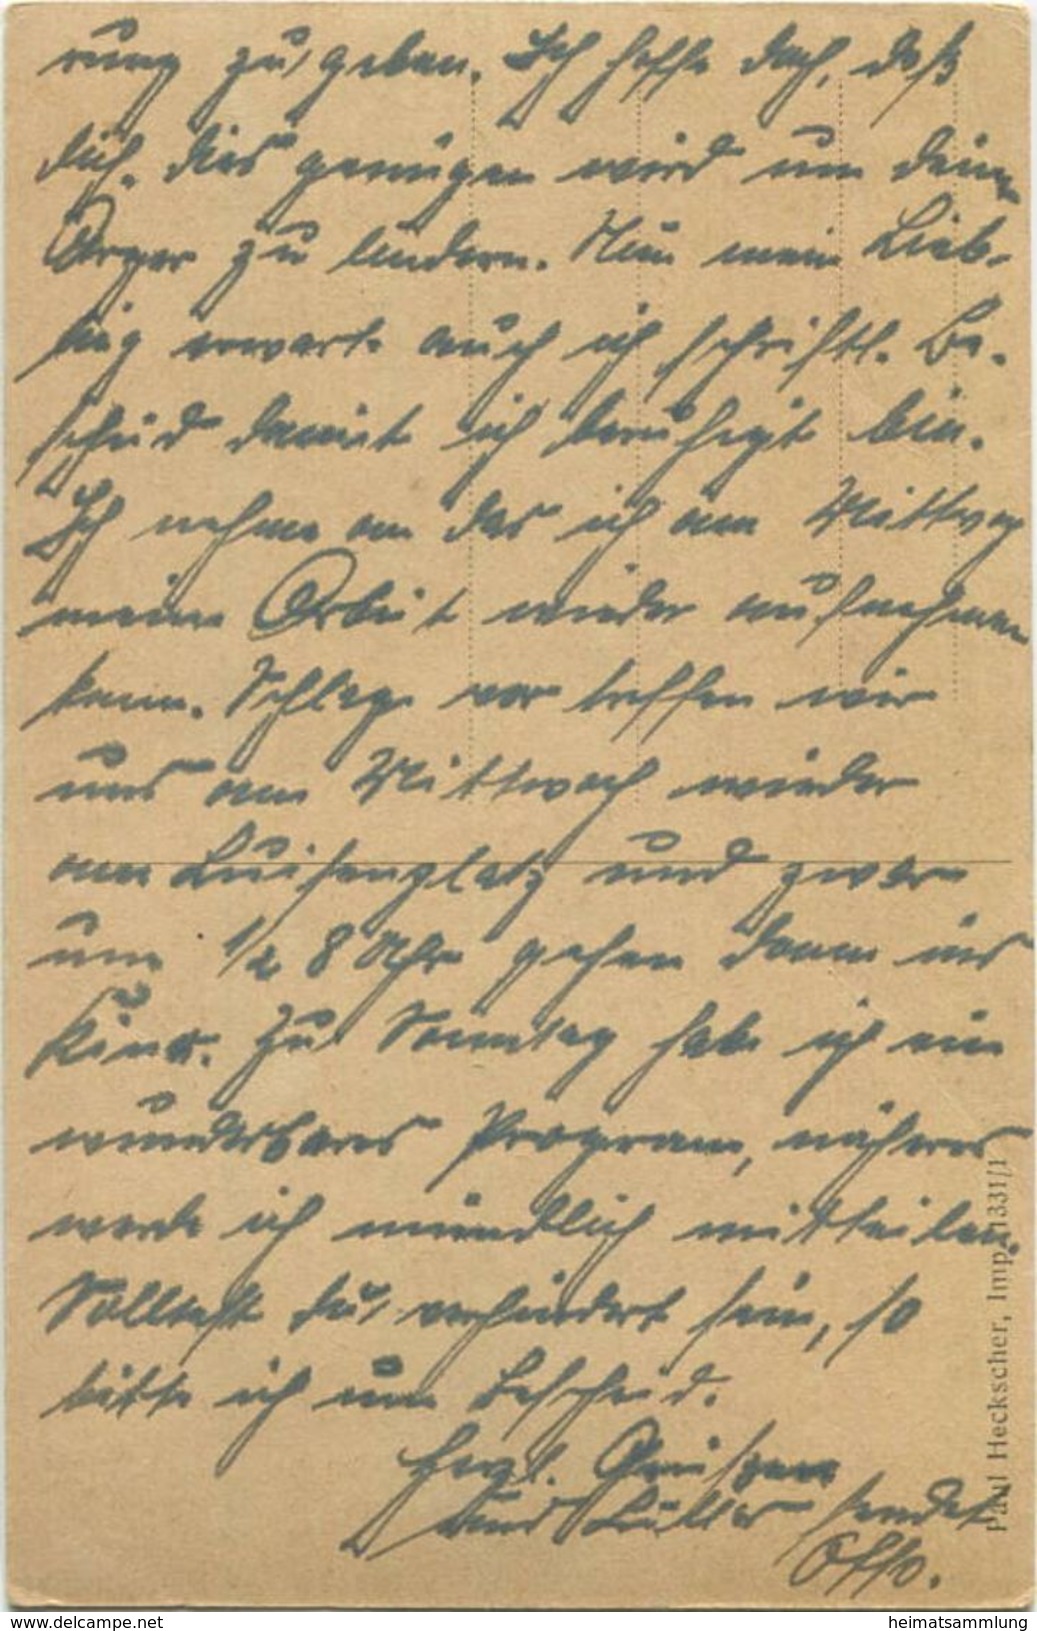 rung zu geben. Ich hoffe doch, daß
dich dies genügen wird um deinen
Ärger zu lindern. Nun mein Lieb-
ling erwarte auch ich schriftl. Be-
scheid damit ich beruhigt bin.
Ich nehme an das ich am Mittwoch
meine Arbeit wieder aufnehmen
kann. Schlage vor treffen wir
uns am Mittwoch wieder
am Luisenplatz und zwar
um 1/2 8 Uhr gehen dann ins
Kino. Zu Sonntag habe ich ein
wunderbares Program, näheres
werde ich mündlich mitteilen.
Solltest du verhindert sein, so
bitte ich um Bescheid.
Herzl. Grüße
und sendet
Otto.
Paul Heckscher, Imp. 1331/1
www.delcampe.net
heimatsammlung